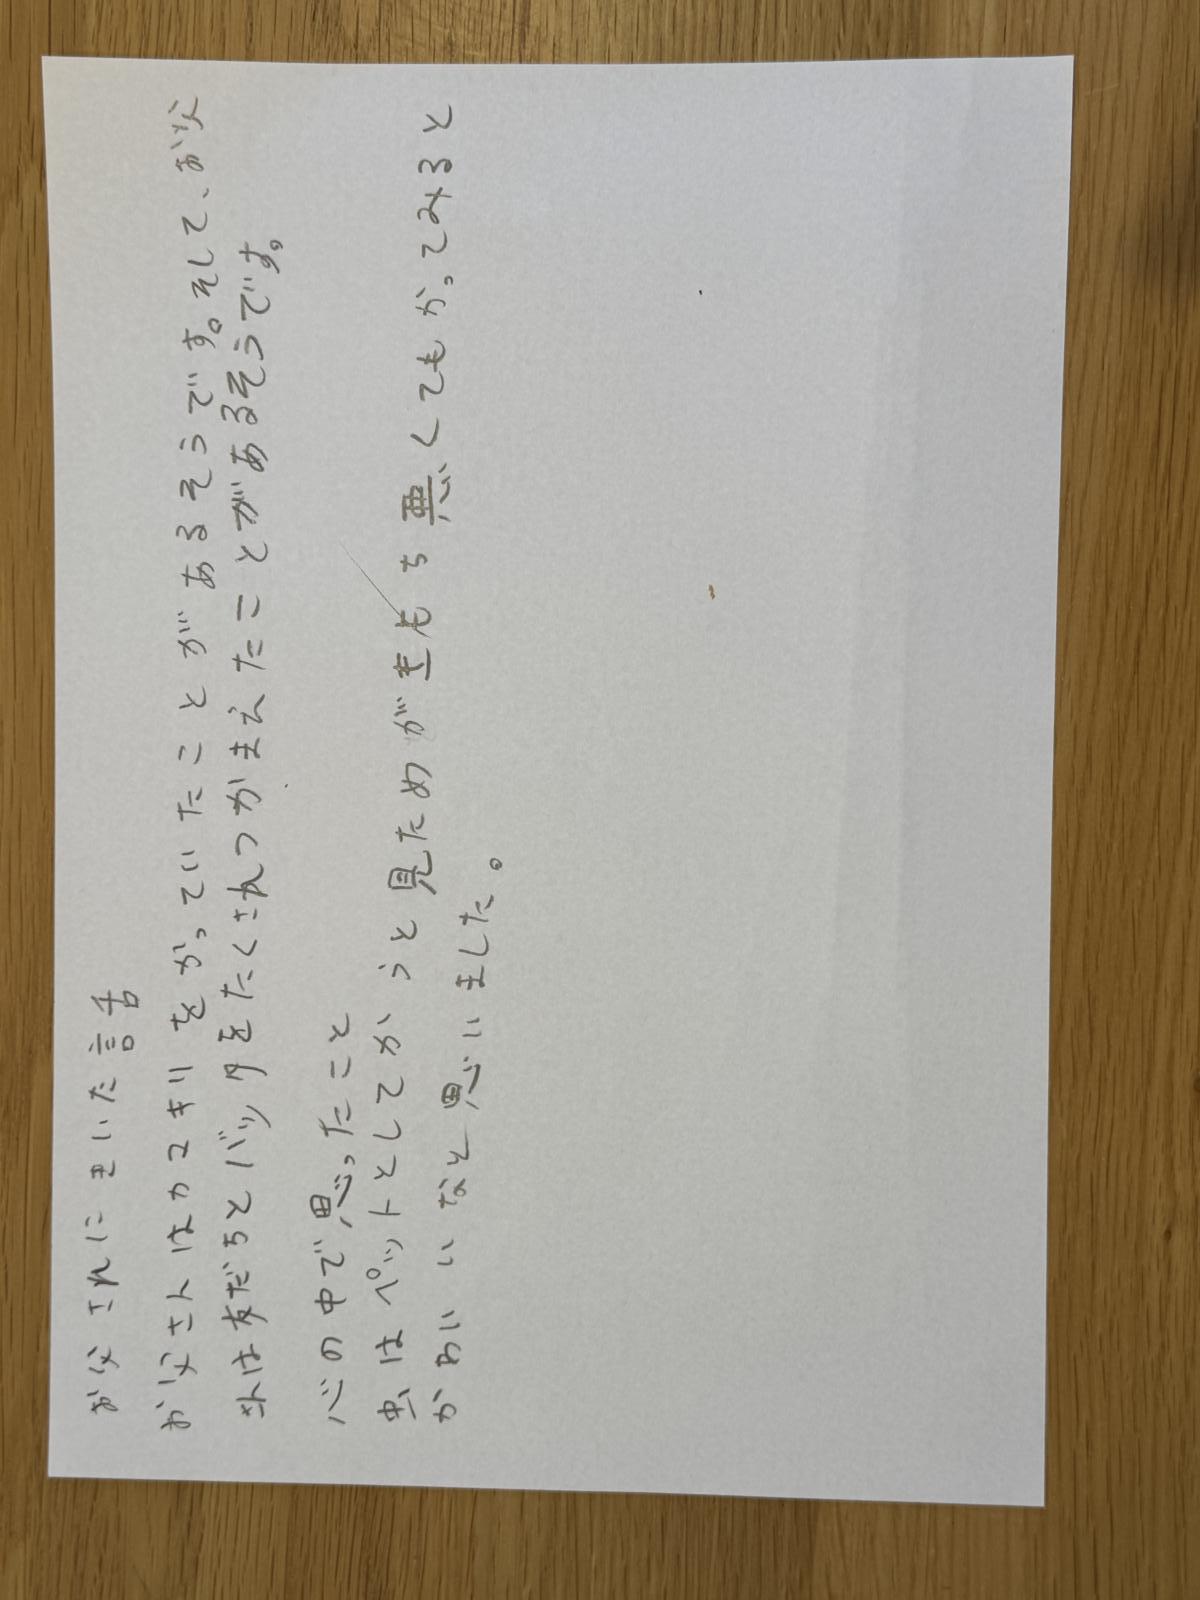 お父さんにきいた言舌
お父さんはカマキリをかっていたことがあるそうです。そして、お父
さんは友だちとバッタをたくさんつかまえたことがあるそうです。
心の中で思ったこと
虫はペットとしてかうと見ためがきもち悪くてもかってみると
かわいいなと思いました。